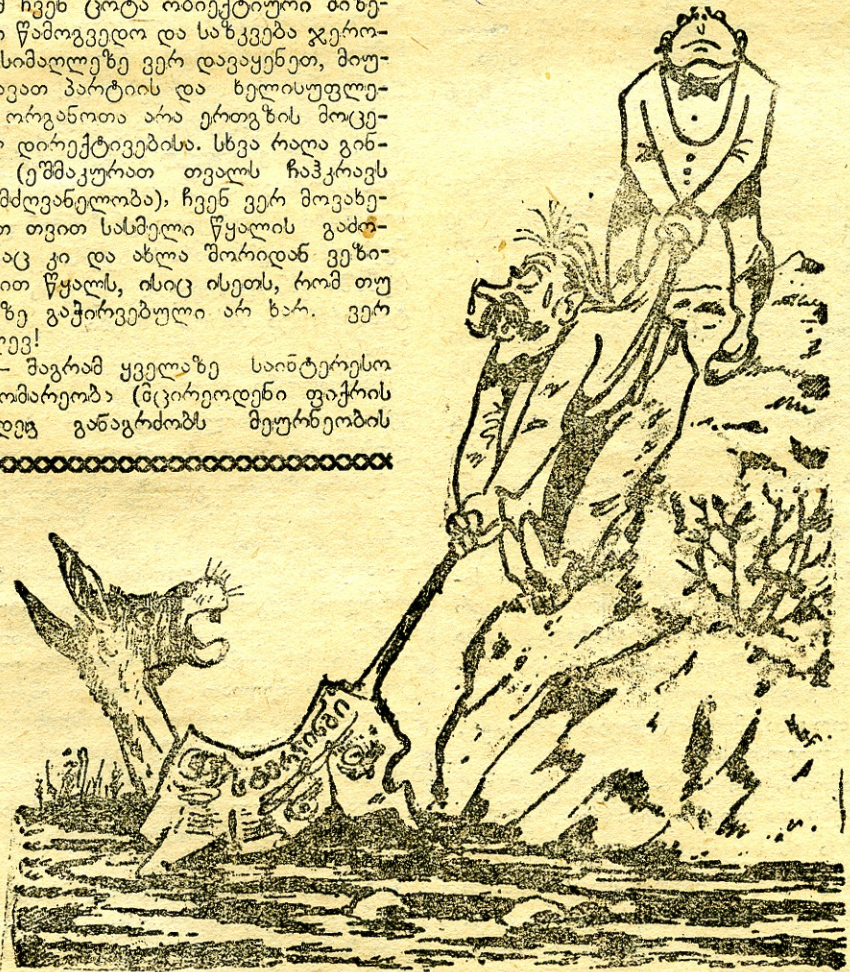 ჩვენ ცოტა ობიექტიური მიზე-
წამოგვედო და საზკვება ჯერო-
სიმაღლეზე ვერ დავაყენეთ, მიუ-
ავათ პარტიის და ხელისუფლე-
ორგანოთა არა ერთგზის მოცე-
დირექტივებისა. სხვა რაღა გინ-
(ეშმაკურათ თვალს ჩაჰკრავს
მძღვანელობა), ჩვენ ვერ მოვახე-
თ თვით სასმელი წყალის გამო-
აც კი და ახლა შორიდან ვეზი-
ით წყალს, ისიც ისეთს, რომ თუ
ზე გაჭირვებული არ ხარ. ვერ
ლევ!
— მაგრამ ყველაზე საინტერესო
ომარეობა (მცირეოდენი ფიქრის
დეგ განაგრძობს მეურნეობის